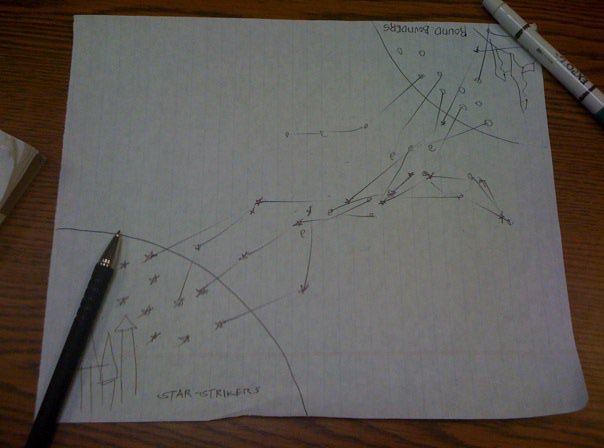 ROUND BOUNDERS
EXPO
STAR-STRIKERS